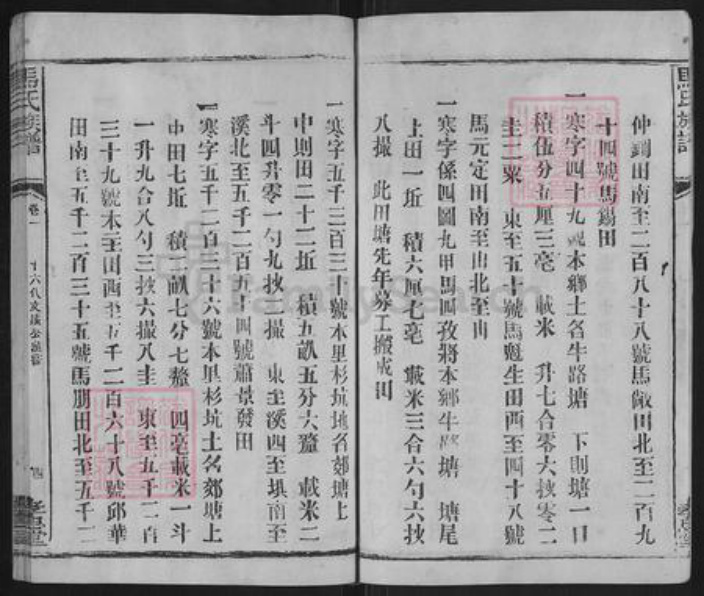 馬氏族譜
仲釗田南至二百八十八號馬儆田北至二百九
十四號馬錫田
一寒字四十九號本鄉土名牛路塘 下則塘一口
積伍分五厘三毫 載米 升七合零六抄零二
圭二粟 東至五十號馬魁生田西至四十八號
馬元定田南至山北至山
一寒字係四圖九甲馬四孜將本鄉牛路塘 塘尾
上田一坵 積六厘七毫 載米三合六勺六抄
八撮 此田塘先年募工搬成田
孝思堂
一寒字五千三百三十號本里杉坑地名郊塘上
中則田二十二坵 積五畝五分六釐 載米二
斗四升零一勺九抄二撮 東至溪西至埧南至
溪北至五千二百五十四號蕭景發田
一寒字五千二百三十六號本里杉坑土名郊塘上
中田七坵 積三畝七分七釐 四毫載米一斗
一升九合八勺三抄六撮八圭 東至五千二百
三十九號本至田西至五千二百六十八號邱華
田南至五千二百三十五號馬朋田北至五千二
馬氏族譜
卷一
十六代文溪公派
四
孝思堂
FamilySearch